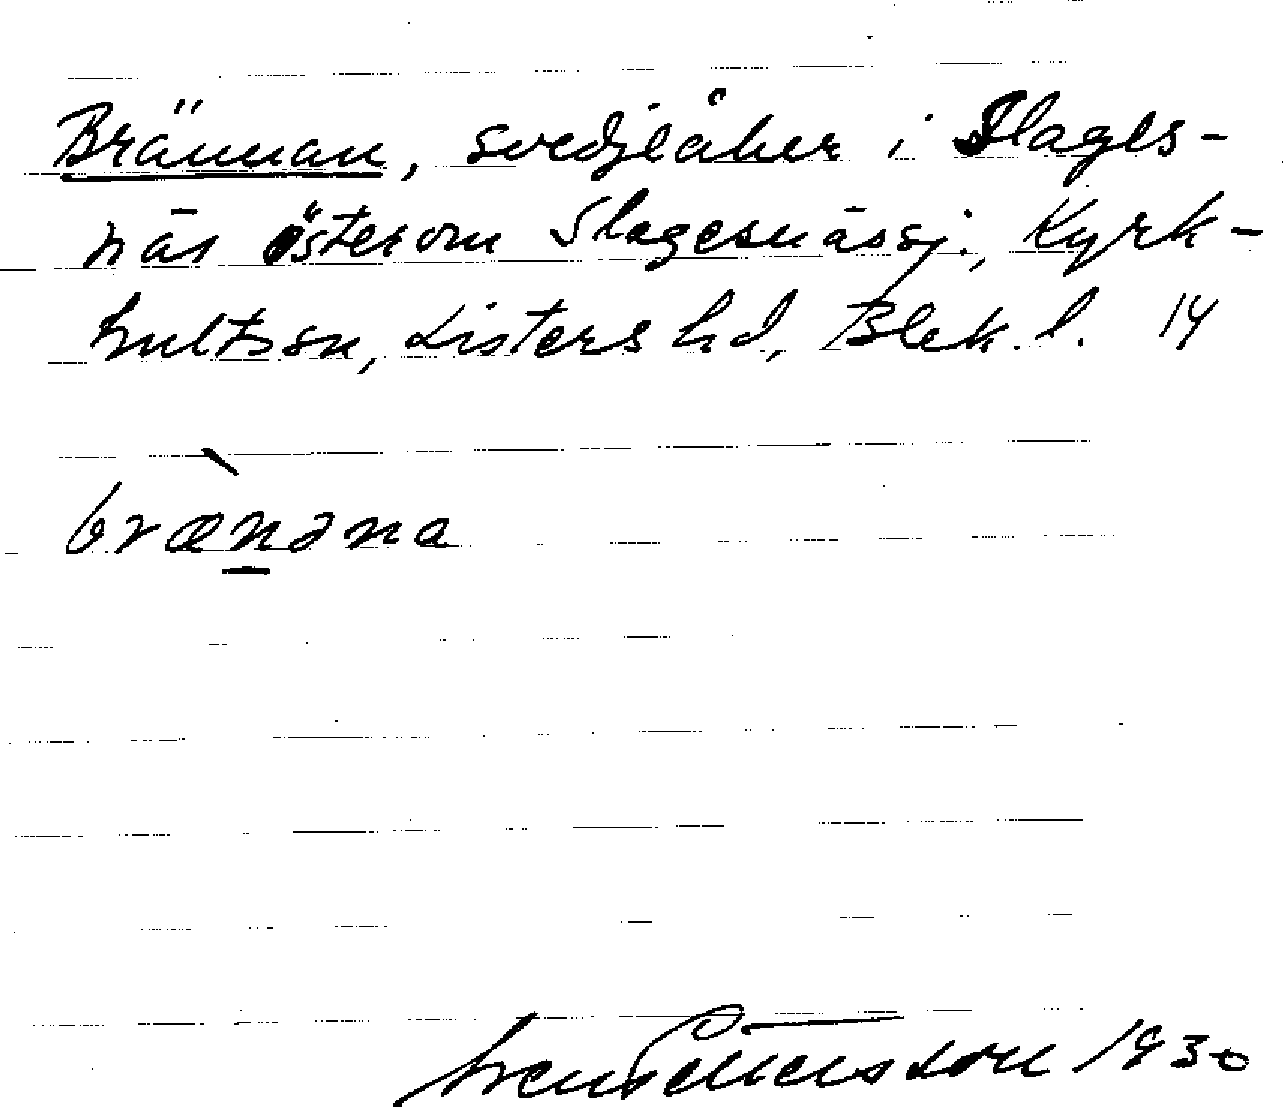 Brännan, svedjeåker i Slages-
näs österom Slagesnässj., Kyrk-
hultssn, Listers hd, Blek. l. 14
brænəna
Sven Pettersson 1930